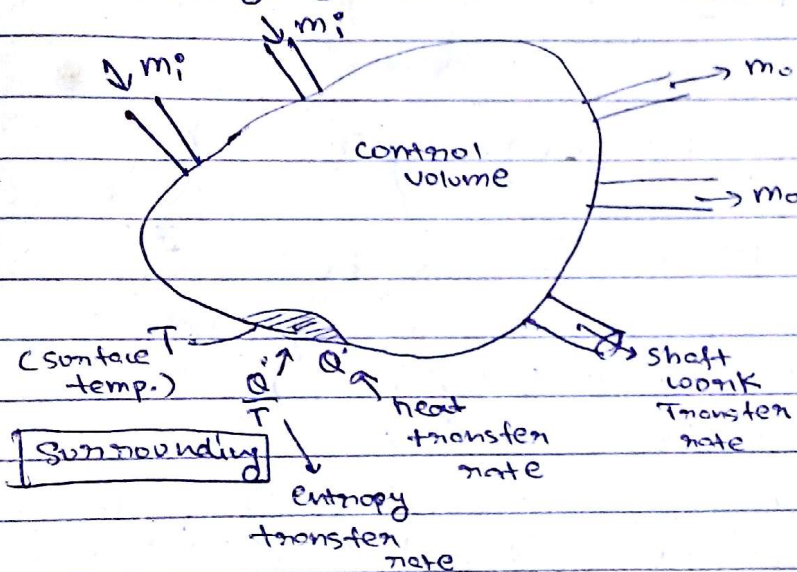 mi
mi
mo
control
volume
mo
T
(surface
temp.)
Q̇
T
Q̇
heat
transfer
rate
shaft
work
Transfer
rate
Surrounding
entropy
transfer
rate